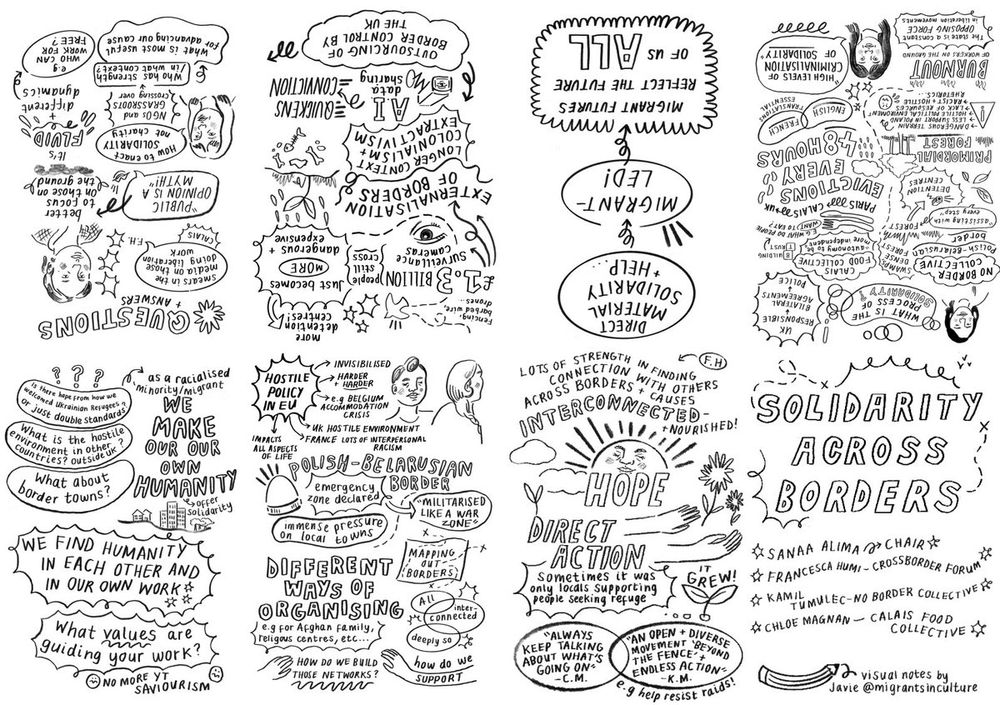 QUESTIONS
+ ANSWERS
smears in the
media on those
doing liberation
work
CALAIS
F.H.
better
to focus
on those on
the ground
"PUBLIC
OPINION IS A
MYTH!"
How to enact
SOLIDARITY
not charity
NGOs and
GRASSROOTS
crossing over
it's
FLUID
+
different
dynamics
Who has strength
in what context?
what is most useful
for advancing our cause
e.g
WHO CAN
WORK FOR
FREE?
more
detention
centres!
fencing,
barbed wire,
drones...
£1.3
BILLION
SURVEILLANCE
cameras
people
still
cross
just becomes
MORE
dangerous +
expensive
EXTERNALISATION
OF BORDERS
LONGER CONTEXT
COLONIALISM +
EXTRACTIVISM
A.I
data
sharing
QUICKENS
CONVICTION
OUTSOURCING OF
BORDER CONTROL BY
THE UK
DIRECT
MATERIAL
SOLIDARITY
+ HELP
MIGRANT-
LED!
MIGRANT FUTURES
REFLECT THE FUTURE
OF US ALL
WHAT IS THE
PROCESS OF
SOLIDARITY?
UK
RESPONSIBLE
BILATERAL
AGREEMENTS
POLICE
NO BORDER
COLLECTIVE
POLISH-BELARUSIAN
border
"assisting with
every step"
DENSE
FOREST
SWAMPS
CALAIS
FOOD
COLLECTIVE
autonomy to be
more independent
BUILDING
TRUST
PARIS
CALAIS
UK
EVICTIONS
EVERY
48 HOURS
DETENTION
CENTRES
PRIMORDIAL
FOREST
ENGLISH
FRENCH
TRANSLATIONS
ESSENTIAL
→ DANGEROUS TERRAIN
→ LESS SUPPORT IN POLAND
→ HOSTILE POLITICAL ENVIRONMENT
→ LACK OF RESOURCES
→ RACIST + HOSTILE
RHETORIC...
"HIGH LEVELS OF
CRIMINALISATION
OF SOLIDARITY"
BURNOUT
OF WORKERS ON THE GROUND
The state is a constant
OPPOSING FORCE
in liberation movements
? ? ?
Is there hope from how we
welcomed Ukrainian Refugees?
Or just double standards?
What is the hostile
environment in other
countries? outside UK?
What about
border towns?
as a racialised
minority/migrant
WE
MAKE
OUR OUR
OWN
HUMANITY
offer
solidarity
WE FIND HUMANITY
IN EACH OTHER AND
IN OUR OWN WORK
What values are
guiding your work?
NO MORE YT
SAVIOURISM
HOSTILE
POLICY
IN EU
INVISIBILISED
HARDER
+ HARDER
e.g BELGIUM
ACCOMMODATION
CRISIS
UK HOSTILE ENVIRONMENT
FRANCE LOTS OF INTERPERSONAL
RACISM
IMPACTS
ALL ASPECTS
OF LIFE
POLISH-BELARUSIAN
BORDER
emergency
zone declared
MILITARISED
LIKE A WAR
ZONE?
immense pressure
on local towns
MAPPING
OUT
BORDERS!
DIFFERENT
WAYS OF
ORGANISING
e.g for Afghan family,
religous centres, etc...
All
inter-
connected
deeply so
HOW DO WE BUILD
THOSE NETWORKS?
how do we
SUPPORT
LOTS OF STRENGTH IN FINDING
CONNECTION WITH OTHERS
ACROSS BORDERS + CAUSES
F.H
INTERCONNECTED-
+NOURISHED!
HOPE
DIRECT
ACTION
sometimes it was
only locals supporting
people seeking refuge
IT
GREW!
"ALWAYS
KEEP TALKING
ABOUT WHAT'S
GOING ON"
-C.M.
"AN OPEN + DIVERSE
MOVEMENT "BEYOND
THE FENCE" +
ENDLESS ACTION"
-K.M.
e.g help resist raids!
SOLIDARITY
ACROSS
BORDERS
SANAA ALIMA → CHAIR
FRANCESCA HUMI - CROSSBORDER FORUM
KAMIL
TUMULEC - NO BORDER COLLECTIVE
CHLOE MAGNAN — CALAIS FOOD
COLLECTIVE
visual notes by
Javie @migrantsinculture